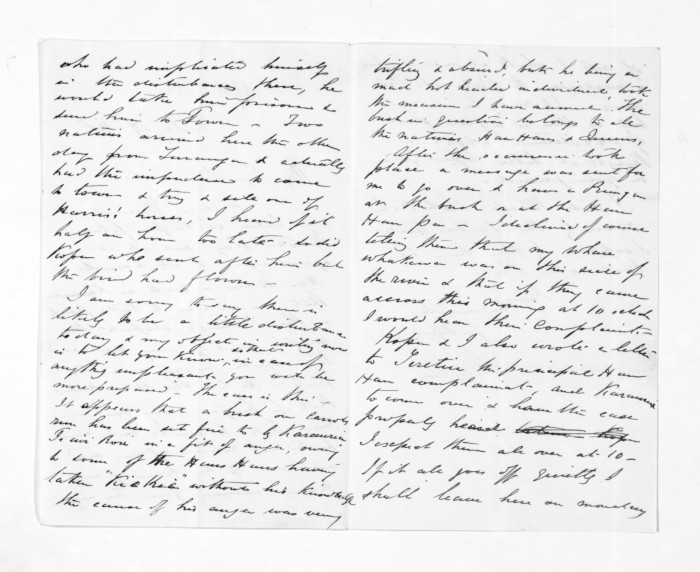 who had implicated himself
in the disturbances there, he
would take him prisoner &
send him to Town - Two
natives arrived here the other
day from Turanga & actually
had the impudence to come
to town & try & sell one of
Harris' horses, I heard of it
half an hour too late - so did
Kopu who sent after him but
the bird had flown -
I am sorry to say there is
likely to be a little disturbance
today & my object in writing now
is to let you know, so that in case of
anything unpleasant you will be
more prepared - The case is this -
It appears that a bush on
run has been set fire to by Karauria,
in a fit of anger, owing
to some of the Hau Haus having
taken "Kie Kie" without his knowledge
the cause of his anger was very
trifling & absurd, but he being a
mad hot headed individual, took
the measures I have named. The
bush in question belongs to all
the natives Hau Haus & Queens,
After the occurrence took
place a message was sent for
me to go over & have a Runanga
at the bush or at the Hau
Hau Pa - I declined of course
telling them that my Whare
whakawa was on this side of
the river & that if they came
across this morning at 10 oclock
I would hear their complaint -
Kopu & I also wrote a letter
to the principal Hau
Hau complainant, and Karauria
to come over & have the case
properly heard
I expect them all over at 10 -
If it all goes off quietly I
shall leave here on monday